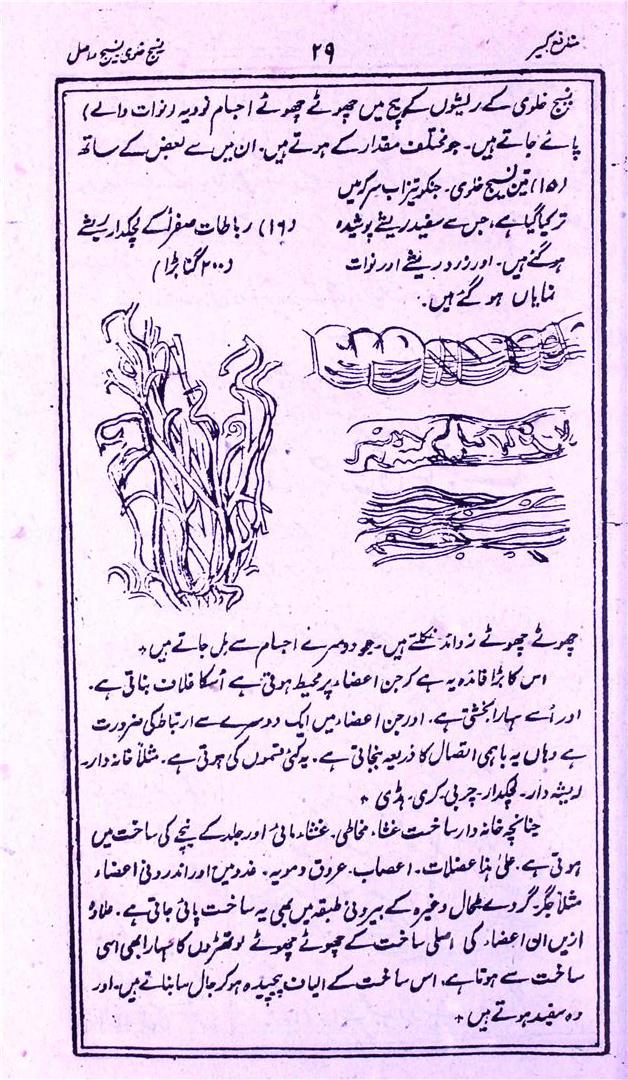 منافع کبیر
۲۹
نسیج خلوی نسیج واصل
نسیج خلوی کے ریشوں کے بیچ میں چھوٹے چھوٹے اجسام نوویہ (نوات والے)
پائے جاتے ہیں۔ جو مختلف مقدار کے ہوتے ہیں۔ ان میں سے بعض کے ساتھ
(۱۵) تین نسیج خلوی۔ جنکو تیزاب سرکہ میں
تر کیا گیا ہے، جس سے سفید ریشے پوشیدہ
ہو گئے ہیں۔ اور زرد ریشے اور نوات
نمایاں ہو گئے ہیں۔
(۱۶) رباطات صفراً کے لچکدار ریشے
(۲۰۰ گنا بڑا)
چھوٹے چھوٹے زوائد نکلتے ہیں۔ جو دوسرے اجسام سے مل جاتے ہیں ۔
اس کا بڑا فائدہ یہ ہے کہ جن اعضاء پر محیط ہوتی ہے اُسکا غلاف بناتی ہے۔
اور اُسے سہارا بخشتی ہے۔ اور جن اعضاء میں ایک دوسرے سے ارتباط کی ضرورت
ہے وہاں یہ باہمی اتصال کا ذریعہ بنجاتی ہے۔ یہ کئی قسموں کی ہوتی ہے۔ مثلاً خانہ دار۔
ریشہ دار۔ لچکدار۔ چربی۔ کری۔ ہڈی ۔
چنانچہ خانہ دار ساخت غشاء مخاطی۔ غشاء مائی اور جلد کے نیچے کی ساخت میں
ہوتی ہے۔ علیٰ ہذا عضلات۔ اعصاب۔ عروق دمویہ۔ غدد میں اور اندرونی اعضاء
مثلاً جگر گردے طحال وغیرہ کے بیرونی طبقہ میں بھی یہ ساخت پائی جاتی ہے۔ علاوہ
ازیں ان اعضاء کی اصلی ساخت کے چھوٹے چھوٹے لوتھڑوں کا سہارا بھی اسی
ساخت سے ہوتا ہے، اس ساخت کے الیاف پیچیدہ ہو کر جال سا بناتے ہیں۔ اور
وہ سفید ہوتے ہیں ۔